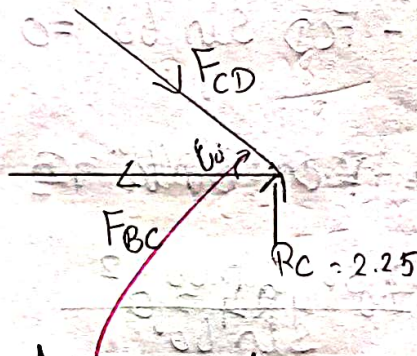 F_CD
F_BC
R_C = 2.25